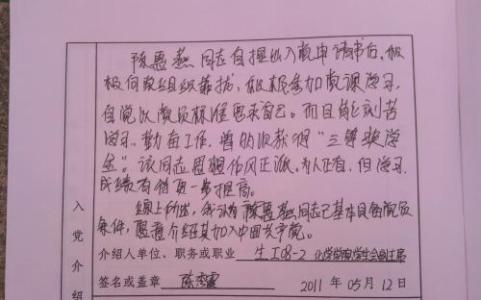 陈思燕同志自提出入党申请书后,积
极向党组织靠拢,积极参加党课学习,
自觉以党员标准要求自己。而且能刻苦
学习、勤奋工作,曾多次获得"三等奖学
金"。该同志思想作风正派,为人正直,但学习
成绩有待更一步提高。
综上所述,我认为陈思燕同志已基本具备党员
条件,愿意介绍其加入中国共产党。
入党介绍
介绍人单位、职务或职业 生工08-2 化学学院学生会副主席
签名或盖章 陈
2011 年 05 月 12 日